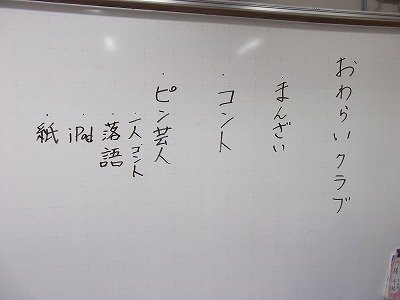 おわらいクラブ
・まんざい
・コント
・ピン芸人
・一人コント
・落語
・iPad
・紙